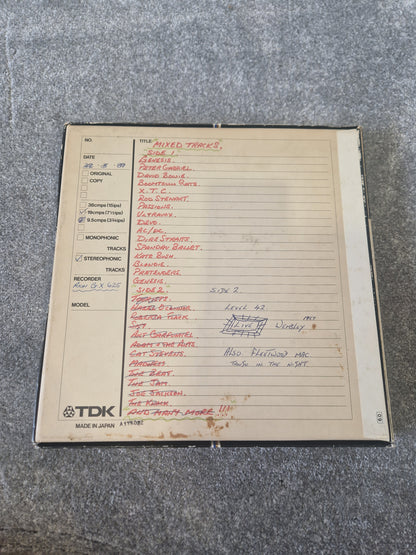 NO.
TITLE MIXED TRACKS.
SIDE 1.
DATE
ORIGINAL
COPY
38cmps (15ips)
19cmps (7½ips)
9.5cmps (3¾ips)
MONOPHONIC
TRACKS
STEREOPHONIC
TRACKS
RECORDER
AKAI GX 625
MODEL
GENESIS.
PETER GABRIEL.
DAVID BOWIE.
BOOMTOWN RATS.
X.T.C.
ROD STEWART.
PASSIONS.
ULTRAVOX.
DEVO.
AC/DC.
DIRE STRAITS.
SPANDAU BALLET.
KATE BUSH.
BLONDIE.
PRETENDERS.
GENESIS.
SIDE 2. SIDE 2.
HAZEL O'CONNOR. LEVEL 42.
ROBERTA FLACK.
LIVE WEMBLEY 1987
ART GARFUNKEL.
ADAM & THE ANTS.
CAT STEVENS. ALSO FLEETWOOD MAC.
MADNESS. TANGO IN THE NIGHT.
THE BEAT.
THE JAM.
JOE JACKSON.
THE KNACK.
AND MANY MORE !!!
TDK
MADE IN JAPAN
60